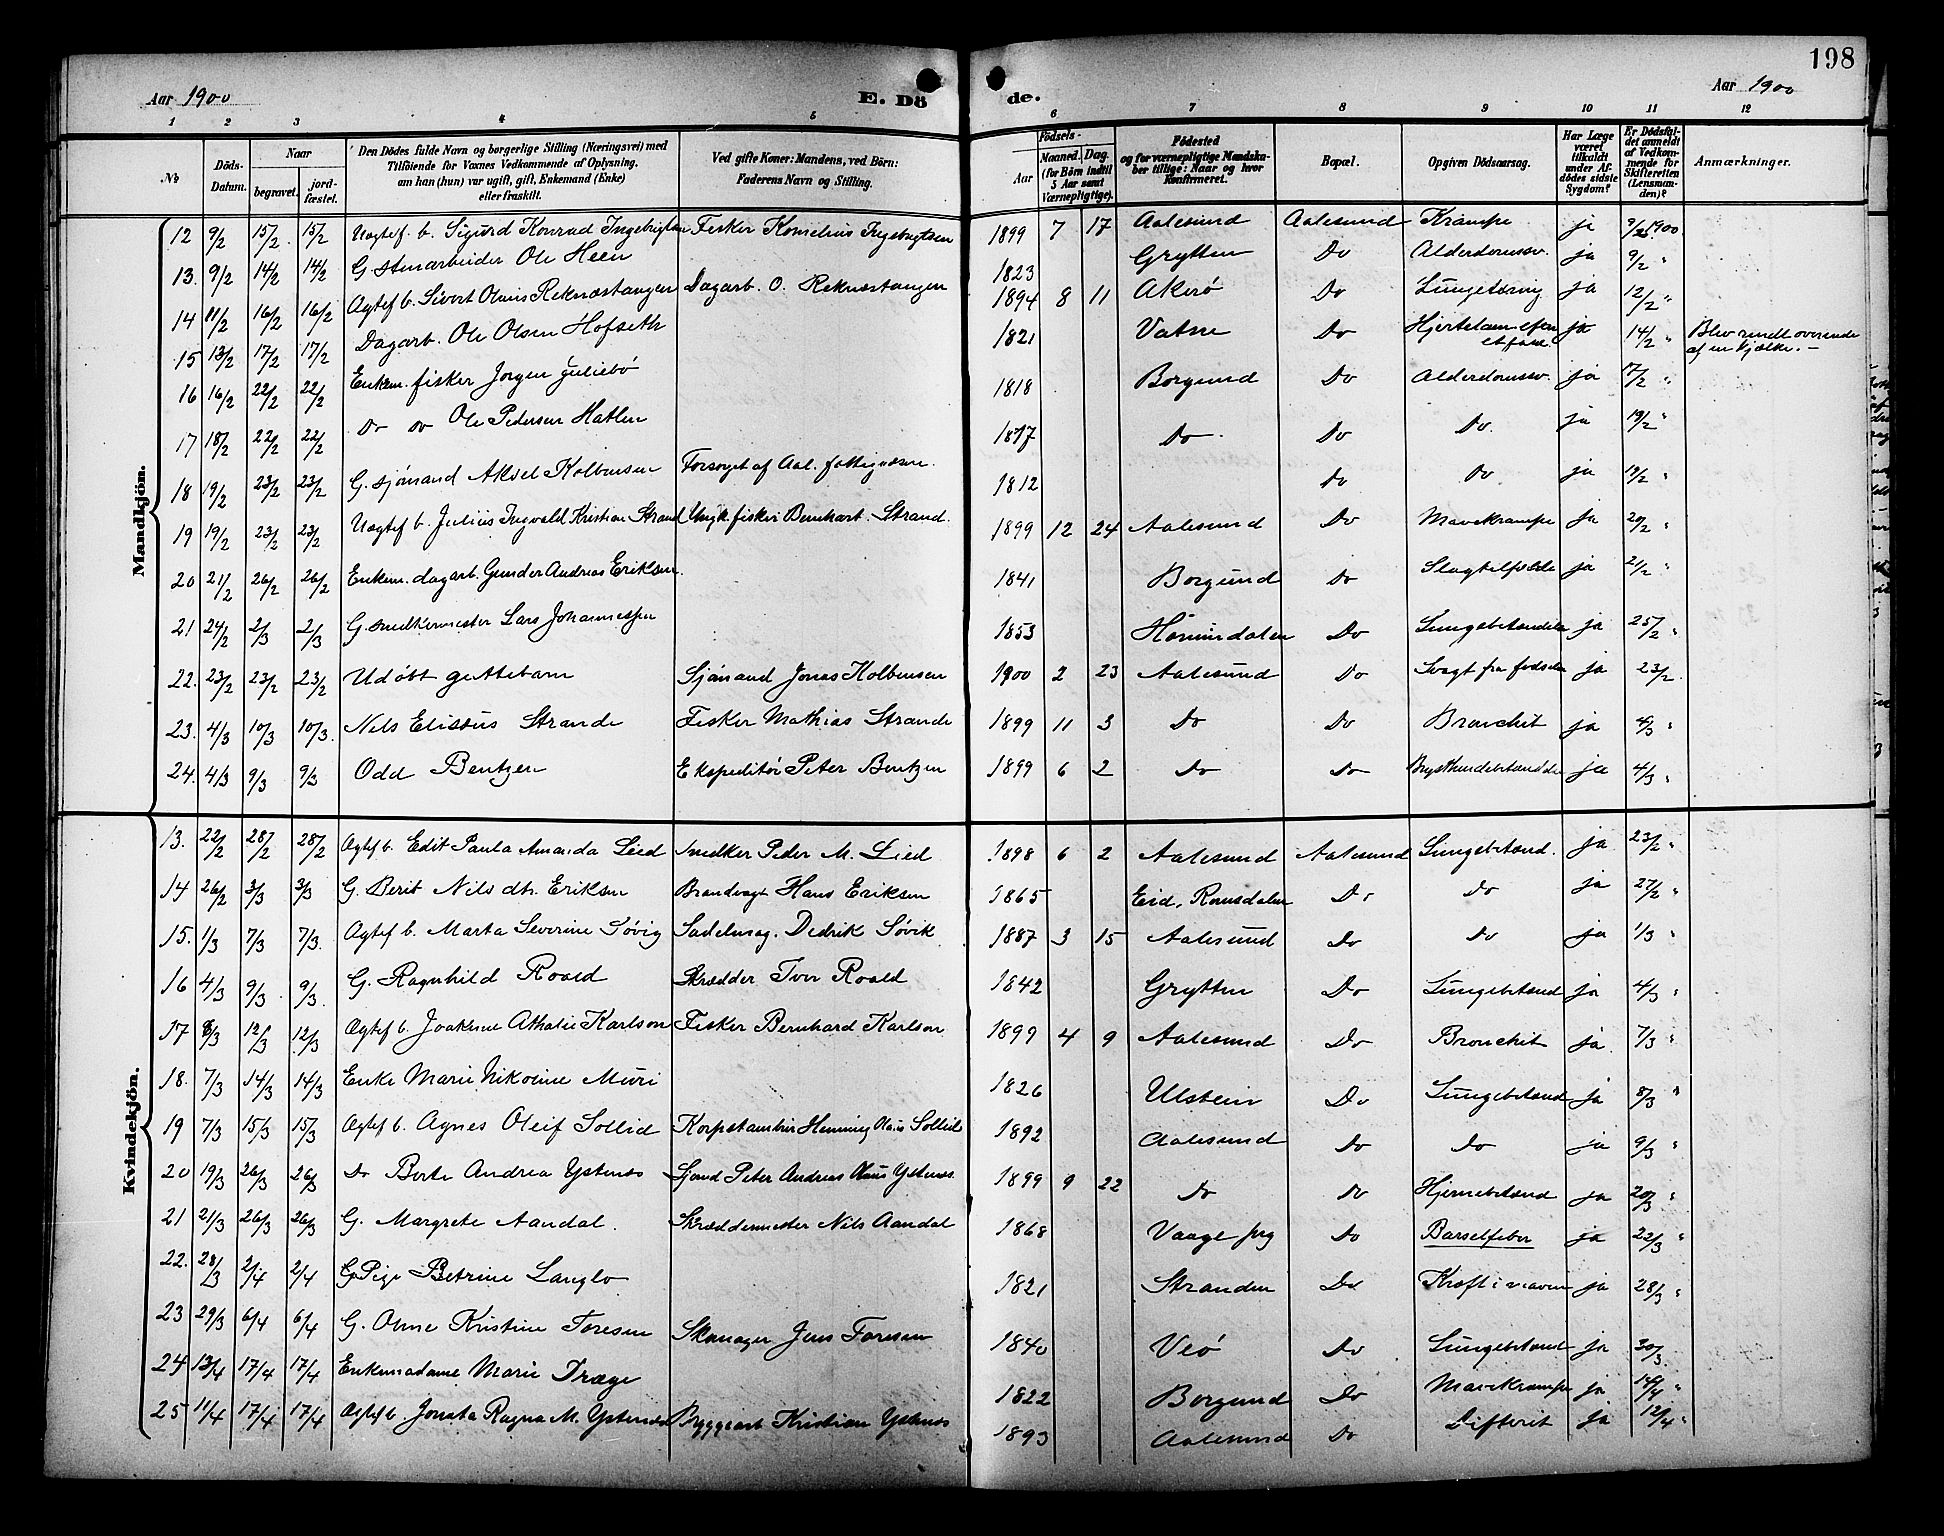 198
Aar 1900
E. Dö
de.
Aar 1900
1 2 3 4 5 6 7 8 9 10 11 12
No
Döds-Datum.
Naar
begravet.
jord-fæstet.
Den Dödes fulde Navn og borgerlige Stilling (Næringsvei) med
Tilföiende for Voxnes Vedkommende af Oplysning,
om han (hun) var ugift, gift, Enkemand (Enke)
eller fraskilt.
Ved gifte Koner: Mandens, ved Börn:
Faderens Navn og Stilling.
Födsels-
Aar
Maaned. Dag.
(for Börn indtil
5 Aar samt
Værnepligtige).
Födested
og for værnepligtige Mandska-
ber tillige: Naar og hvor
Konfirmeret.
Bopæl.
Opgiven Dödsaarsag.
Har Læge
været
tilkaldt
under Af-
dödes sidste
Sygdom?
Er Dödsfal-
det anmeldt
af Vedkom-
mende for
Skifteretten
(Lensman-
den)?
Anmærkninger.
Mandkjön.
12 9/2 15/2. 15/2 Uagtef. b. Sigurd Konrad Ingebrigtsen Fisker Kornelius Ingebrigtsen 1899 7 17 Aalesund Aalesund Krampe ja 9/2 1900.
13. 9/2 14/2 14/2 G. stenarbeider Ole Heen 1823 Grytten Do Alderdomssv. ja 9/2 "
14 11/2 16/2 16/2 Ægtef b. Sivert Olaus Reknæstangen Dagarb. O. Reknæstangen 1894 8 11 Akerø Do Lungetæring ja 12/2 "
15 13/2 17/2 17/2 Dagarb. Ole Olsen Hofseth 1821 Vatne Do Hjertelam efter et fald. ja 14/2 " Blev rendt overende
af en Kjælke. –
16 16/2 22/2 22/2 Enkem. fisker Jørgen Juliebø 1818 Borgund Do Alderdomssv. ja 17/2 "
17 18/2 22/2 22/2 Do Do Ole Pedersen Hatlen 1817 Do. Do Do. ja 19/2 "
18 19/2 23/2 23/2 G. sjømand Aksel Kolbensen Forsørget af Aal. fattigvæsen. 1812 Do Do ja 19/2 "
19 19/2 23/2 23/2 Uagtef b. Julius Ingvald Kristian Strand Ungk. fisker Bernhart Strand. 1899 12 24 Aalesund Do Mavekrampe ja 20/2 "
20 21/2 26/2 26/2 Enkem. dagarb. Gunder Andreas Eriksen. 1841 Borgund Do Slagtilfælde ja 21/2 "
21 24/2 2/3 2/3 G. snedkermester Lars Johannessen 1853 Hornindalen Do Lungebetændelse ja 25/2 "
22. 23/2 23/2 23/2 Udøbt guttebarn Sjømand Jonas Kolbensen 1900 2 23 Aalesund Do Svagt fra fødselen ja 23/2.
23. 4/3 10/3 10/3. Nils Elisæus Strande Fisker Mathias Strande 1899 11 3 Do Do Bronchit ja 4/3 "
24. 4/3 9/3 9/3 Odd Bentzen Ekspeditør Peter Bentzen 1899 6 2 Do Do Brysthindebetændelse ja 4/3 "
Kvindekjön.
13. 22/2 28/2 28/2 Ægtef b. Edit Paula Amanda Lied Snedker Peder M. Lied 1898 6 2 Aalesund Aalesund Lungebetænd. ja 23/2 "
14 26/2 3/3 3/3 G. Berit Nilsdtr. Eriksen Brandvagt Hans Eriksen 1865 Eid, Romsdalen Do Do ja 27/2 "
15. 1/3 7/3 7/3. Ægtef b. Marta Severine Søvig Sadelmag. Dedrik Søvik 1887 3 15 Aalesund Do Do ja 1/3 "
16 4/3 9/3. 9/3. G. Ragnhild Roald Skrædder Iver Roald 1842 Grytten Do Lungebetænd ja 4/3 "
17 6/3 12/3 12/3 Ægtef b. Joakime Athalie Karlson Fisker Bernhard Karlson 1899 4 9 Aalesund Do Bronchit ja. 7/3 "
18. 7/3 14/3 14/3 Enke Marie Nikoline Muri 1826 Ulstein Do Lungebetænd ja 8/3 "
19 7/3 15/3 15/3 Ægtef b. Agnes Oleif Sollid Korpstambur Henning Olaus Sollid 1892 Aalesund Do Do ja 9/3 "
20 19/3 26/3 26/3 Do Berte Andrea Ystenes Sjømd Peter Andreas Olaus Ystenes. 1899 9 22 Do Do Hjernebetænd ja 20/3 "
21 21/3 26/3 26/3 G. Margrete Aandal. Skræddermester Nils Aandal 1868 Vaage prg Do Barselfeber ja 22/3 "
22. 28/3 2/4 2/4 G. Pige Betrine Langlo 1821 Stranden Do Kræft i maven ja 28/3 "
23 29/3 6/4 6/4 G. Anne Kristine Toresen Skomager Jens Toresen 1840 Veø Do Lungebetænd ja 30/3.
24 13/4 17/4 17/4. Enkemadame Marie Træge 1822 Borgund Do Mavekrampe ja 14/4 "
25 11/4 17/4 17/4 Ægtef b. Jonata Ragna M. Ystenes Bryggearb Kristian Ystenes 1893 Aalesund Do Difterit ja 12/4 "